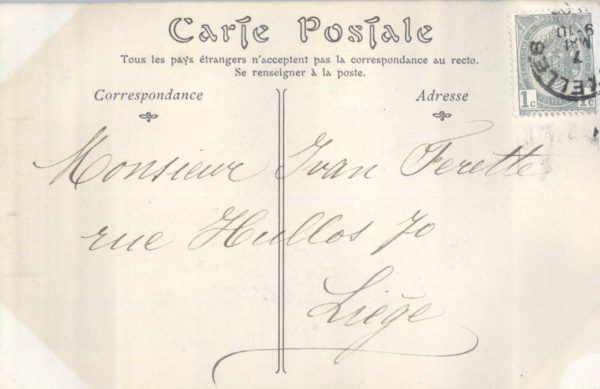 Carte Postale
Tous les pays étrangers n'acceptent pas la correspondance au recto.
Se renseigner à la poste.
Correspondance
Adresse
1c 1c
7
MAI
9-10
Monsieur Ivan Ferette
rue Hullos 70
Liège